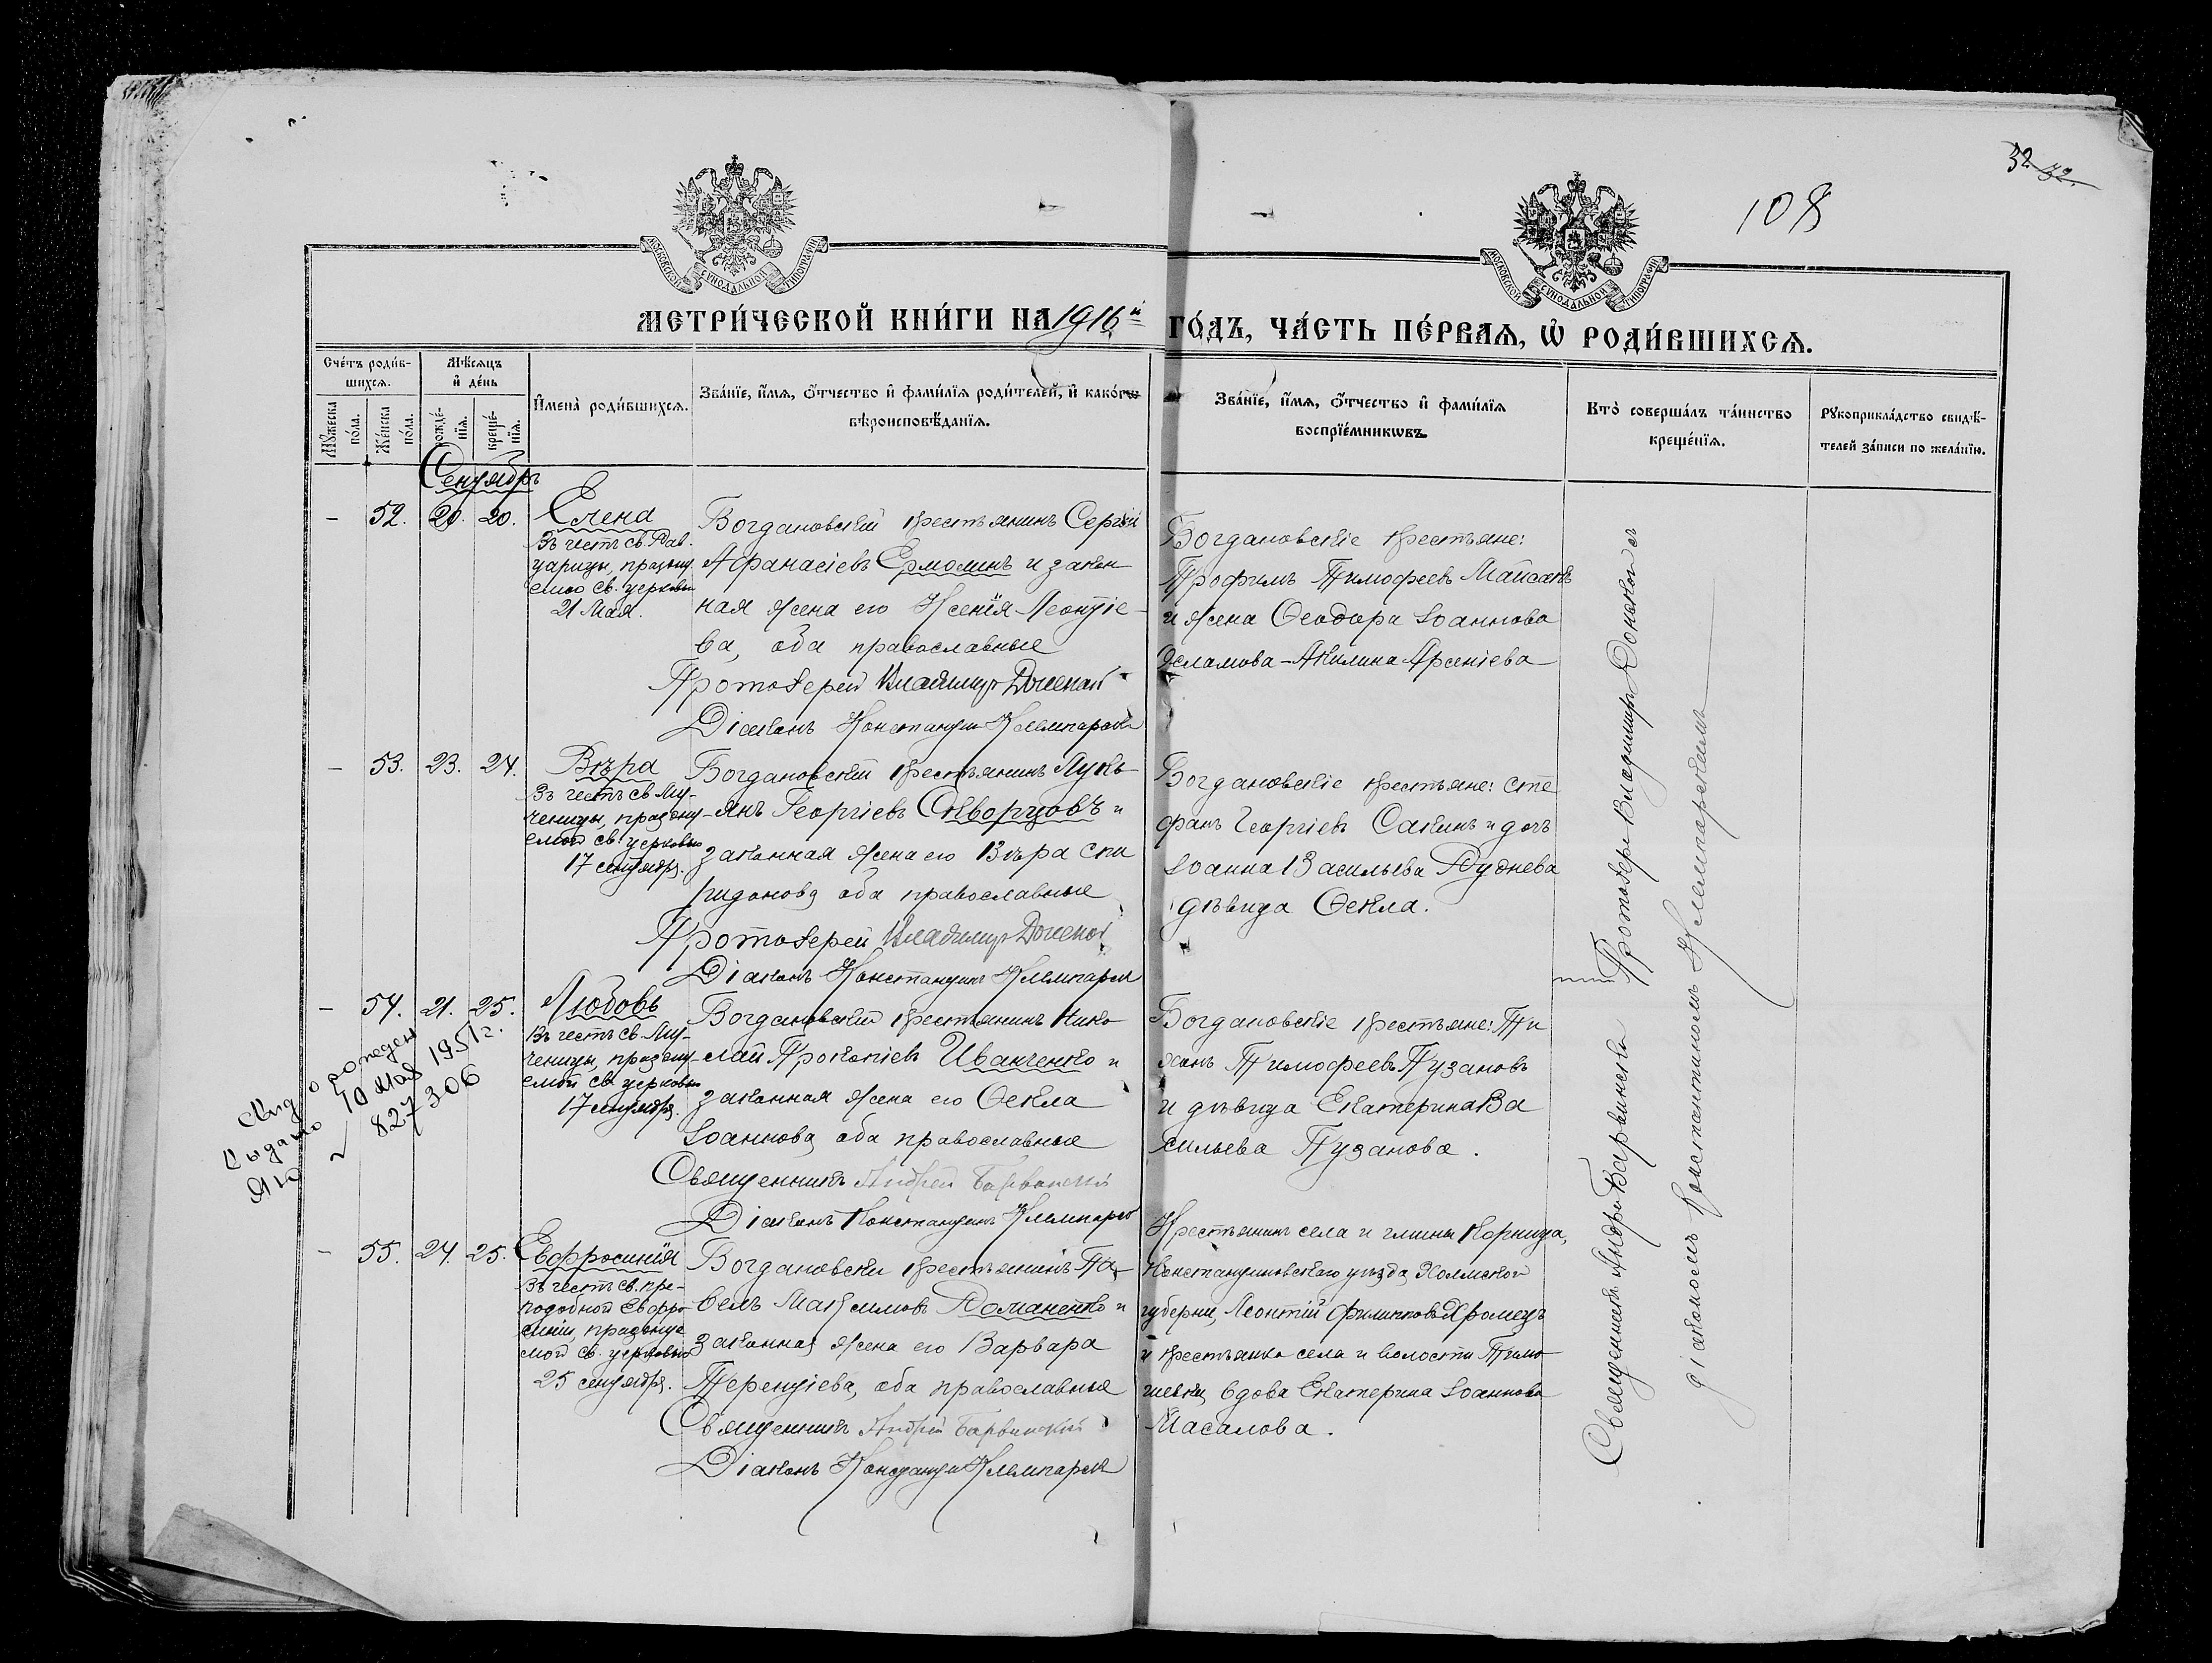 32 32.
108
МОСКОВСКОЙ СѴНОДАЛЬНОЙ ТИПОГРАФІИ
МОСКОВСКОЙ СѴНОДАЛЬНОЙ ТИПОГРАФІИ
МЕТРИ́ЧЕСКОЙ КНИ́ГИ НА 1916й ГО́ДЪ, ЧА́СТЬ ПЕ́РВАЯ, Ѡ҆ РОДИ́ВШИХСЯ.
Сче́тъ роди́в-
шихся.
Мѣ́сяцъ
и҆ де́нь
Мꙋ́жеска
по́ла.
Же́нска
по́ла.
рожде́-
нїя.
креще́-
нїя.
И҆мена̀ роди́вшихся.
Зва́нїе, и҆́мя, ѻ҆́тчество и҆ фами́лїя роди́телей, и҆ како́гѡ
вѣроисповѣ́данїя.
Зва́нїе, и҆́мя, ѻ҆́тчество и҆ фами́лїя
воспрїе́мникѡвъ.
Кто̀ соверша́лъ та́инство
креще́нїя.
Рꙋкоприкла́дство свидѣ́-
телей за́писи по жела́нїю.
Сентябрь
- 52. 20. 20.
Елена
въ честь св. Рав.
царицы, праздну
емой св. церковью
21 Мая.
Богдановскій крестьянинъ Сергѣй
Афанасіевъ Ермолинъ и закон
ная жена его Ксенія Леонтіе-
ва, оба православные
Протоіерей Владимиръ Донской
Діаконъ Константинъ Клемпарскій
Богдановскіе крестьяне:
Трофимъ Тимофеевъ Майсакъ
и жена Ѳеодора Іоаннова
Асламова - Акилина Арсеніева
- 53. 23. 24.
Вѣра
въ честь св. Му-
ченицы, праздну-
емой св. церковью
17 сентября.
Богдановскій крестьянинъ Лукь-
янъ Георгіевъ Скворцовъ и
законная жена его Вѣра Спи
ридонова оба православные
Протоіерей Владимиръ Донской
Діаконъ Константинъ Клемпарскій
Богдановскіе крестьяне: Сте
фанъ Георгіевъ Сакинъ и дочь
Іоанна Васильева Руднева
дѣвица Ѳекла.
- 54. 21. 25.
Любовь
въ честь св. Му-
ченицы, праздну-
емой св. церковью
17 сентября.
Богдановскій крестьянинъ Нико-
лай Прокопіевъ Иванченко и
законная жена его Ѳекла
Іоаннова, оба православные
Священникъ Андрей Барвинскій
Діаконъ Константинъ Клемпарскій
Богдановскіе крестьяне: Ти
хонъ Тимофеевъ Пузановъ
и дѣвица Екатерина Ва
сильева Пузанова.
о рожден
Выдано 10 мая 1951 г.
№ 827306
- 55. 24. 25.
Евфросинія
въ честь св. пре-
подобной Евфро-
синіи, празднуе
мой св. церковью
25 сентября.
Богдановскій крестьянинъ Па-
велъ Максимовъ Романенко и
законная жена его Варвара
Терентіева, оба православные
Священникъ Андрей Барвинскій
Діаконъ Константинъ Клемпарскій
Крестьянинъ села и гмины Корница,
Константиновскаго уѣзда Холмской
губерніи, Леонтій Филипповъ Хромецъ
и крестьянка села и волости Тимо
шевки, вдова Екатерина Іоаннова
Масалова.
Протоіерей Владимиръ Донской съ
Священникъ Андрей Барвинскій
діакономъ Константиномъ Клемпарскимъ